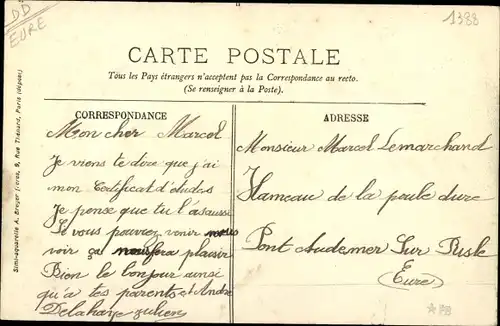 DD
EURE
1388
CARTE POSTALE
Tous les Pays étrangers n'acceptent pas la Correspondance au recto.
(Se renseigner à la Poste).
CORRESPONDANCE
Mon cher Marcel
Je viens te dire que j'ai
mon Certificat d'études
Je pense que tu l'as aussi
Si vous pouvez venir nous
voir ça nous fera plaisir
Bien le bonjour ainsi
qu'a tes parents et André
Delahaye Julien
ADRESSE
Monsieur Marcel Lemarchand
Hameau de la poule dure
Pont Audemer Sur Risle
(Eure)
Simi-aquarelle A. Breger frères, 9, Rue Thénard, Paris (déposé)